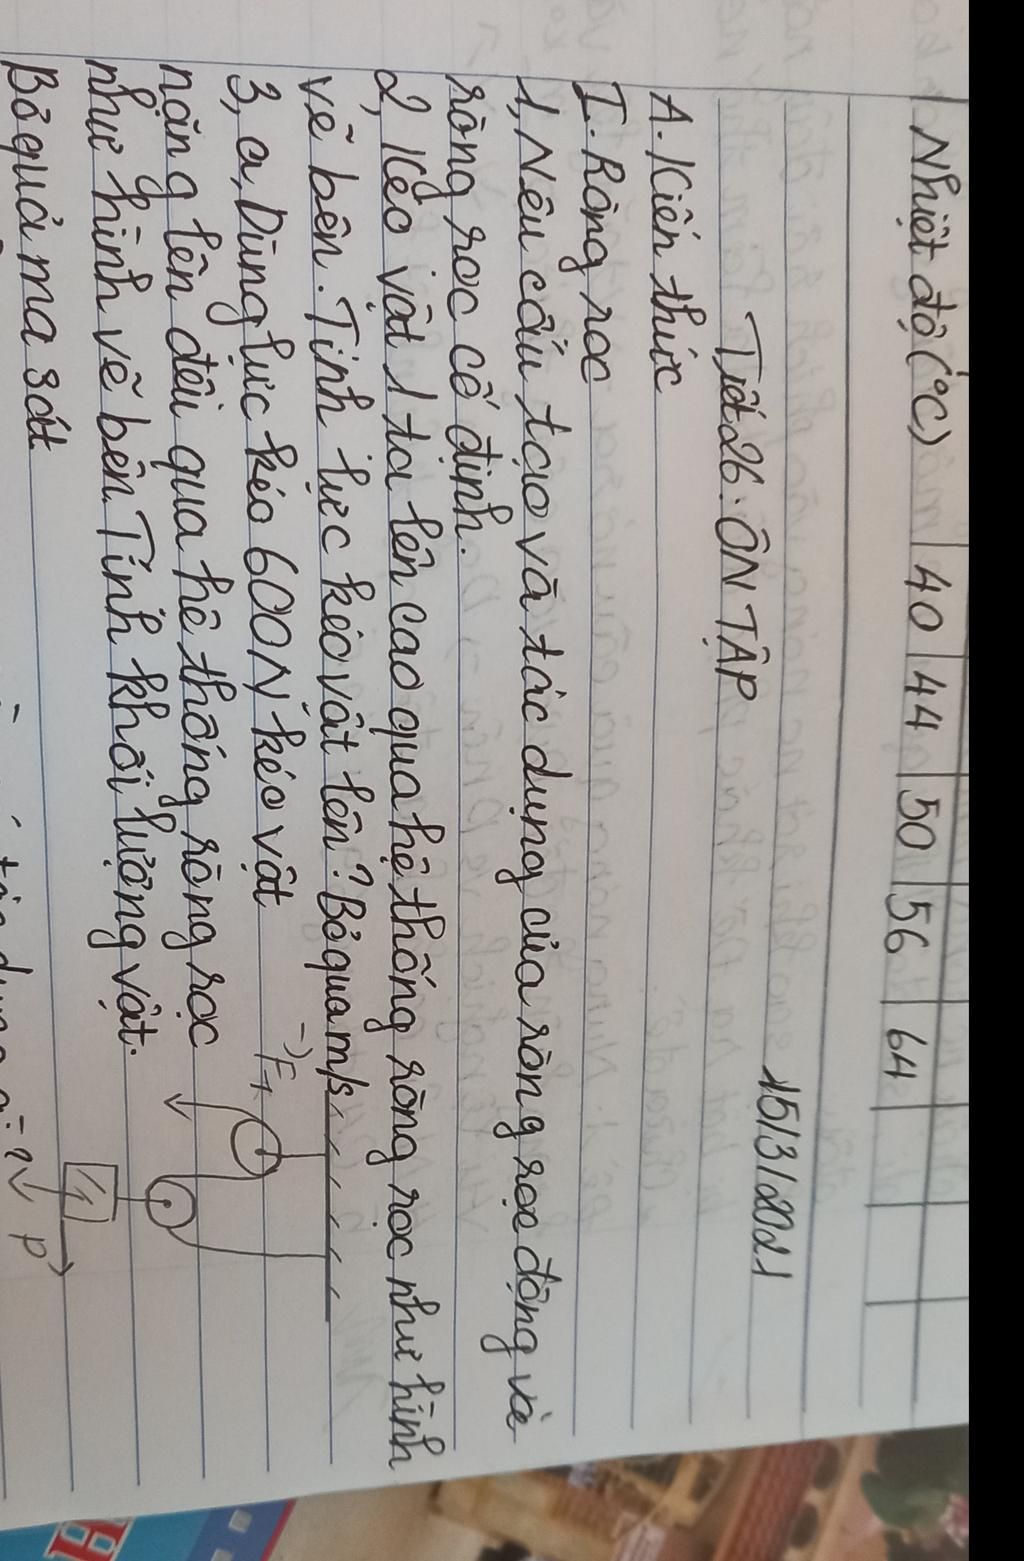 Nhiệt độ (°C) 40 44 50 56 64
15/3/2021
Tiết 26: ÔN TẬP
A. Kiến thức
I. Ròng rọc
1, Nêu cấu tạo và tác dụng của ròng rọc động và
ròng rọc cố định.
2, Kéo vật 1 tạ lên cao qua hệ thống ròng rọc như hình
vẽ bên. Tính lực kéo vật lên? Bỏ qua m/s
3, a, Dùng lực kéo 600N kéo vật
nặng lên đều qua hệ thống ròng rọc
như hình vẽ bên. Tính khối lượng vật.
Bỏ quả ma sát
F
P